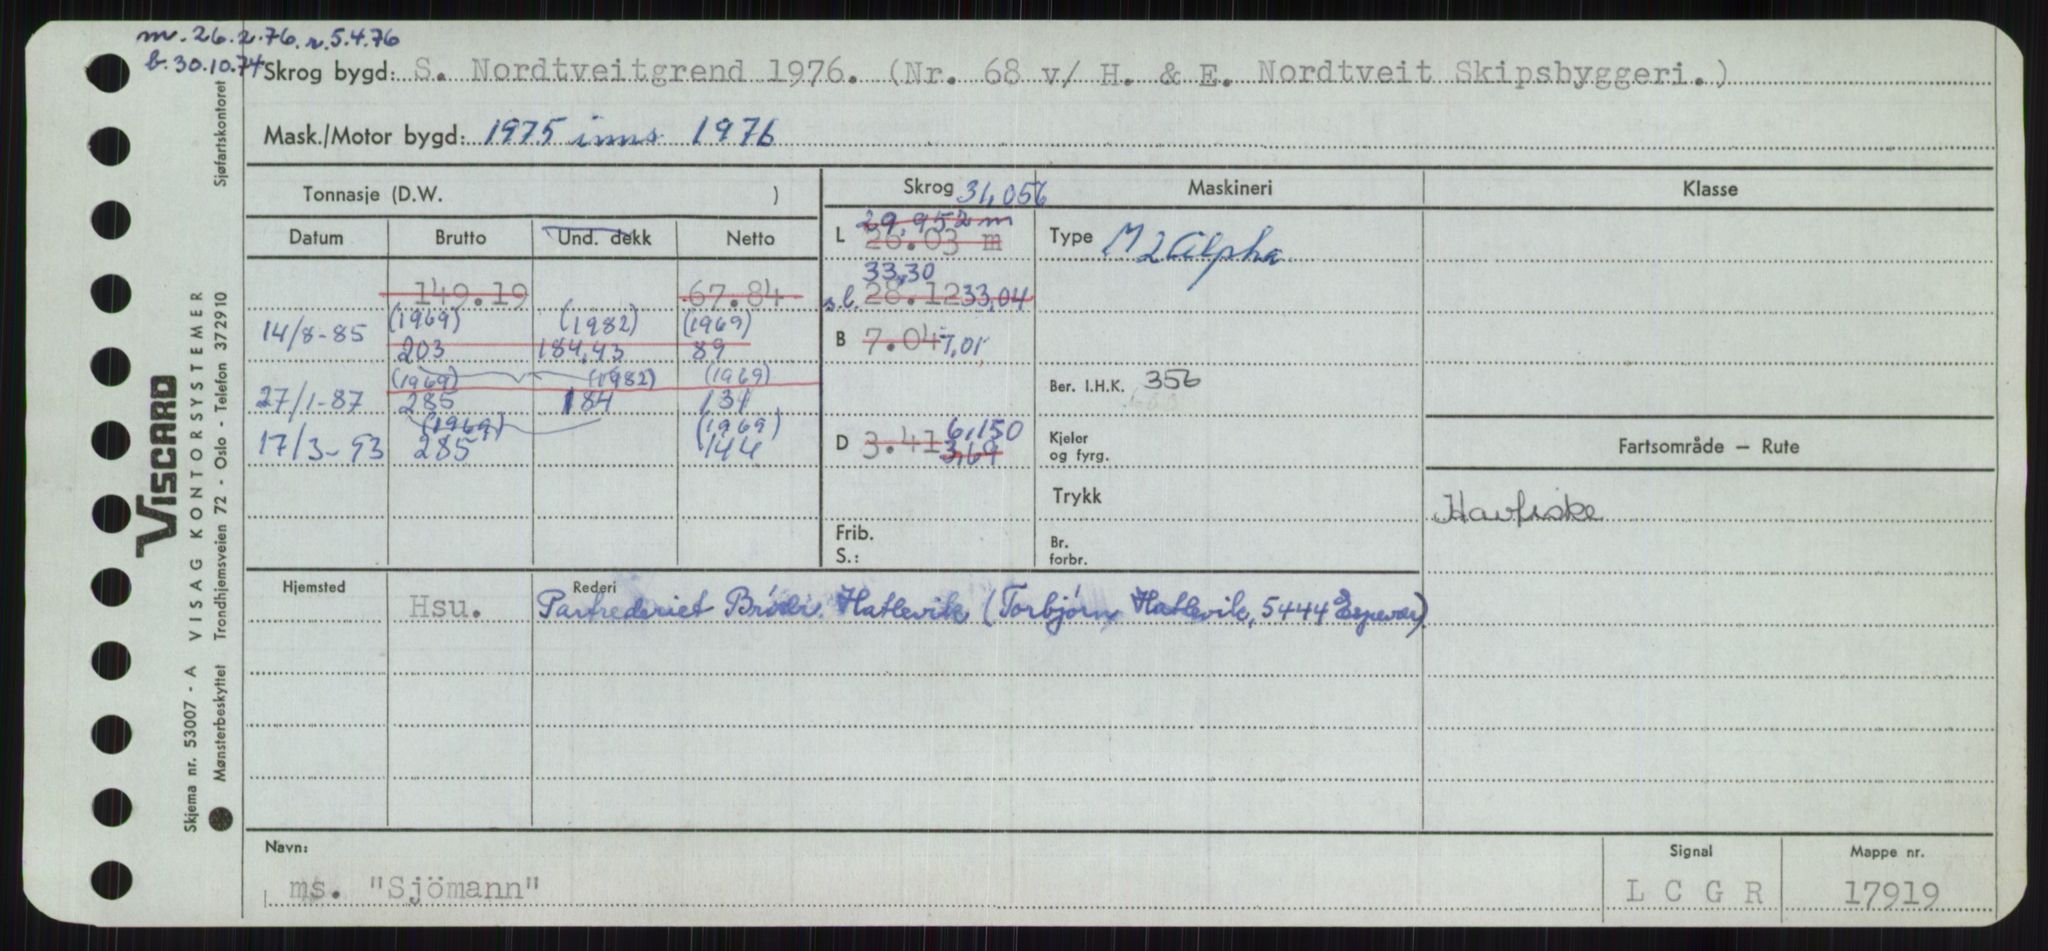 m. 26.2.76. r. 5.4.76
b. 30.10.74
Skrog bygd: S. Nordtveitgrend 1976. (Nr. 68 v/ H. & E. Nordtveit Skipsbyggeri.)
Mask./Motor bygd: 1975 inns 1976
Tonnasje (D.W. )
Skrog 31,056
Maskineri
Klasse
Datum Brutto Und. dekk Netto
149.19 67.84
(1969) (1982) (1969)
14/8-85 203 184,43 89
(1969) (1982) (1969)
27/1-87 285 184 134
(1969) (1969)
17/3-93 285 144
29,952 m
L 26.03 m
33,30
s.l. 28.12 33,04
B 7.04 7,01
6,150
D 3.41 3,69
Frib.
S.:
Type M 2 Alpha
Ber. I.H.K. 356
Kjeler
og fyrg.
Trykk
Br.
forbr.
Fartsområde — Rute
Havfiske
Hjemsted Rederi
Hsu. Partrederiet Brödr. Hatlevik (Torbjørn Hatlevik, 5444 Espevær)
Navn:
ms. "Sjömann"
Signal
L C G R
Mappe nr.
17919
VISCARD
Skjema nr. 53007 - A VISAG KONTORSYSTEMER
Mønsterbeskyttet Trondhjemsveien 72 - Oslo - Telefon 372910 Sjøfartskontoret